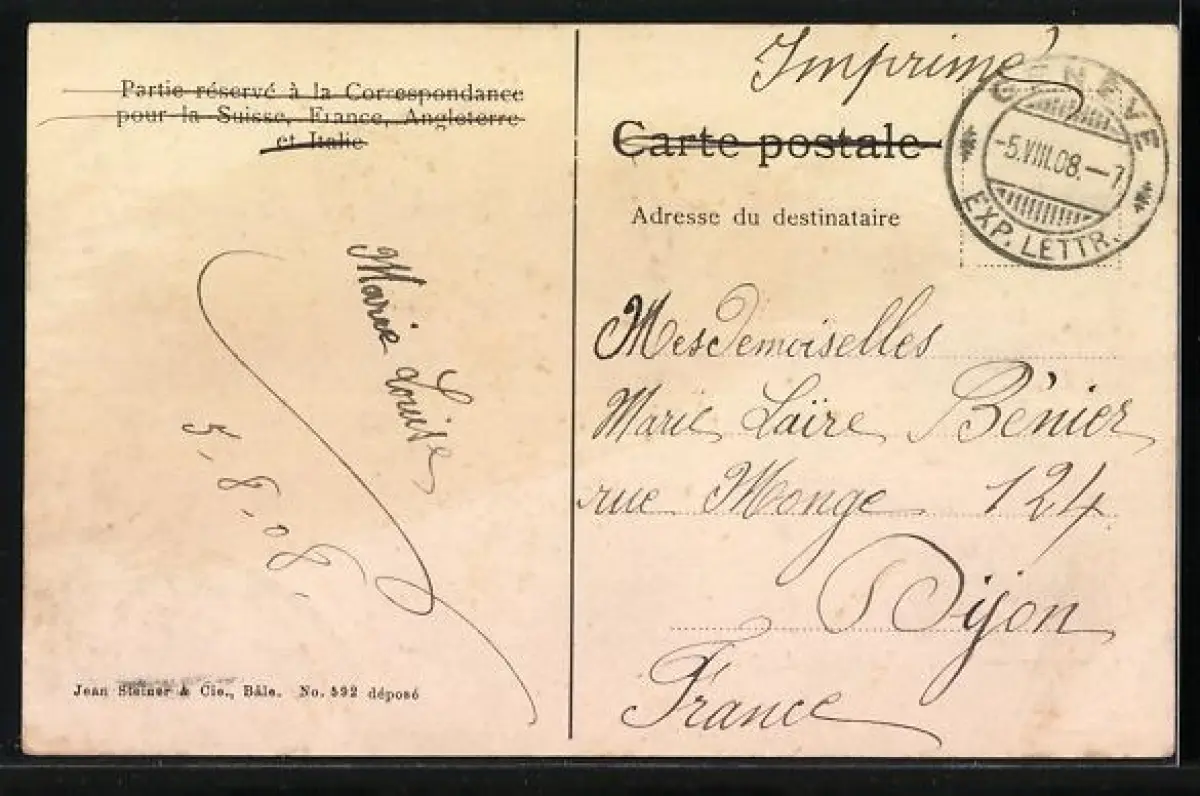 Partie réservé à la Correspondance
pour la Suisse, France, Angleterre
et Italie
Marie Louise
5.8.08.
Jean Steiner & Cie., Bâle. No. 592 déposé
Imprimé
Carte postale
GENÈVE
-5.VIII.08.-7
EXP. LETTR.
Adresse du destinataire
MesDemoiselles
Marie Laïre Bénier
rue Monge 124
Dijon
France